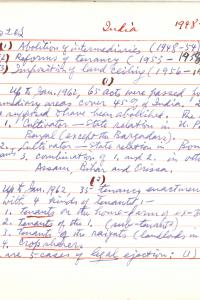 India 1948-
(1) Abolition of intermediaries (1948-54)
(2) Reforms of tenancy (1955-1958
(3) Imposition of land ceiling (1956-1
(1)
Up to Jan, 1962, 65 acts were passed for
mediary areas cover 45% of India,
reported to have been abolished. Re
1. Cultivator-State relation in U.P.
Bengal (except the Bargadars).
2. Cultivator-State relation in Bom
3. combination of 1. and 2. in oth
Assam, Bihar and Orissa.
(2)
Up to Jan, 1962, 35 tenancy enactmen
with 4 kinds of tenants:-
1. Tenants on the home-farm of ex-
2. Tenants of the 1. (sub-tenants)
3. Tenants of the raiyats (landlords in
4. Cropsharers.
are 3 cases of legal ejection: (1)